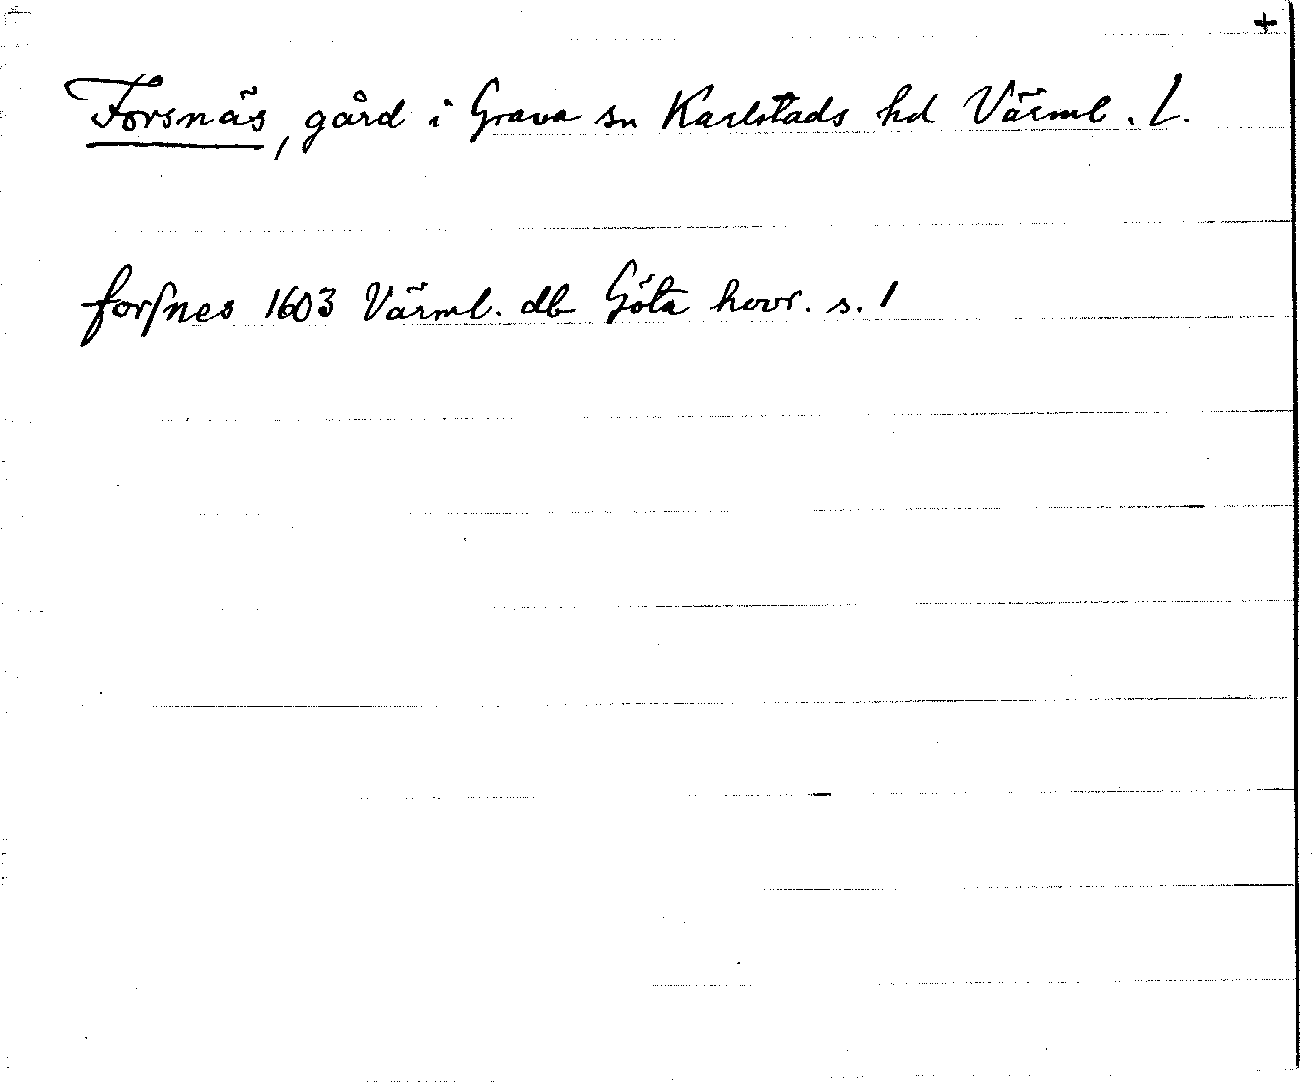 +
Forsnäs, gård i Grava sn Karlstads hd Värml. L.
forſnes 1603 Värml. db Göta hovr. s. 1